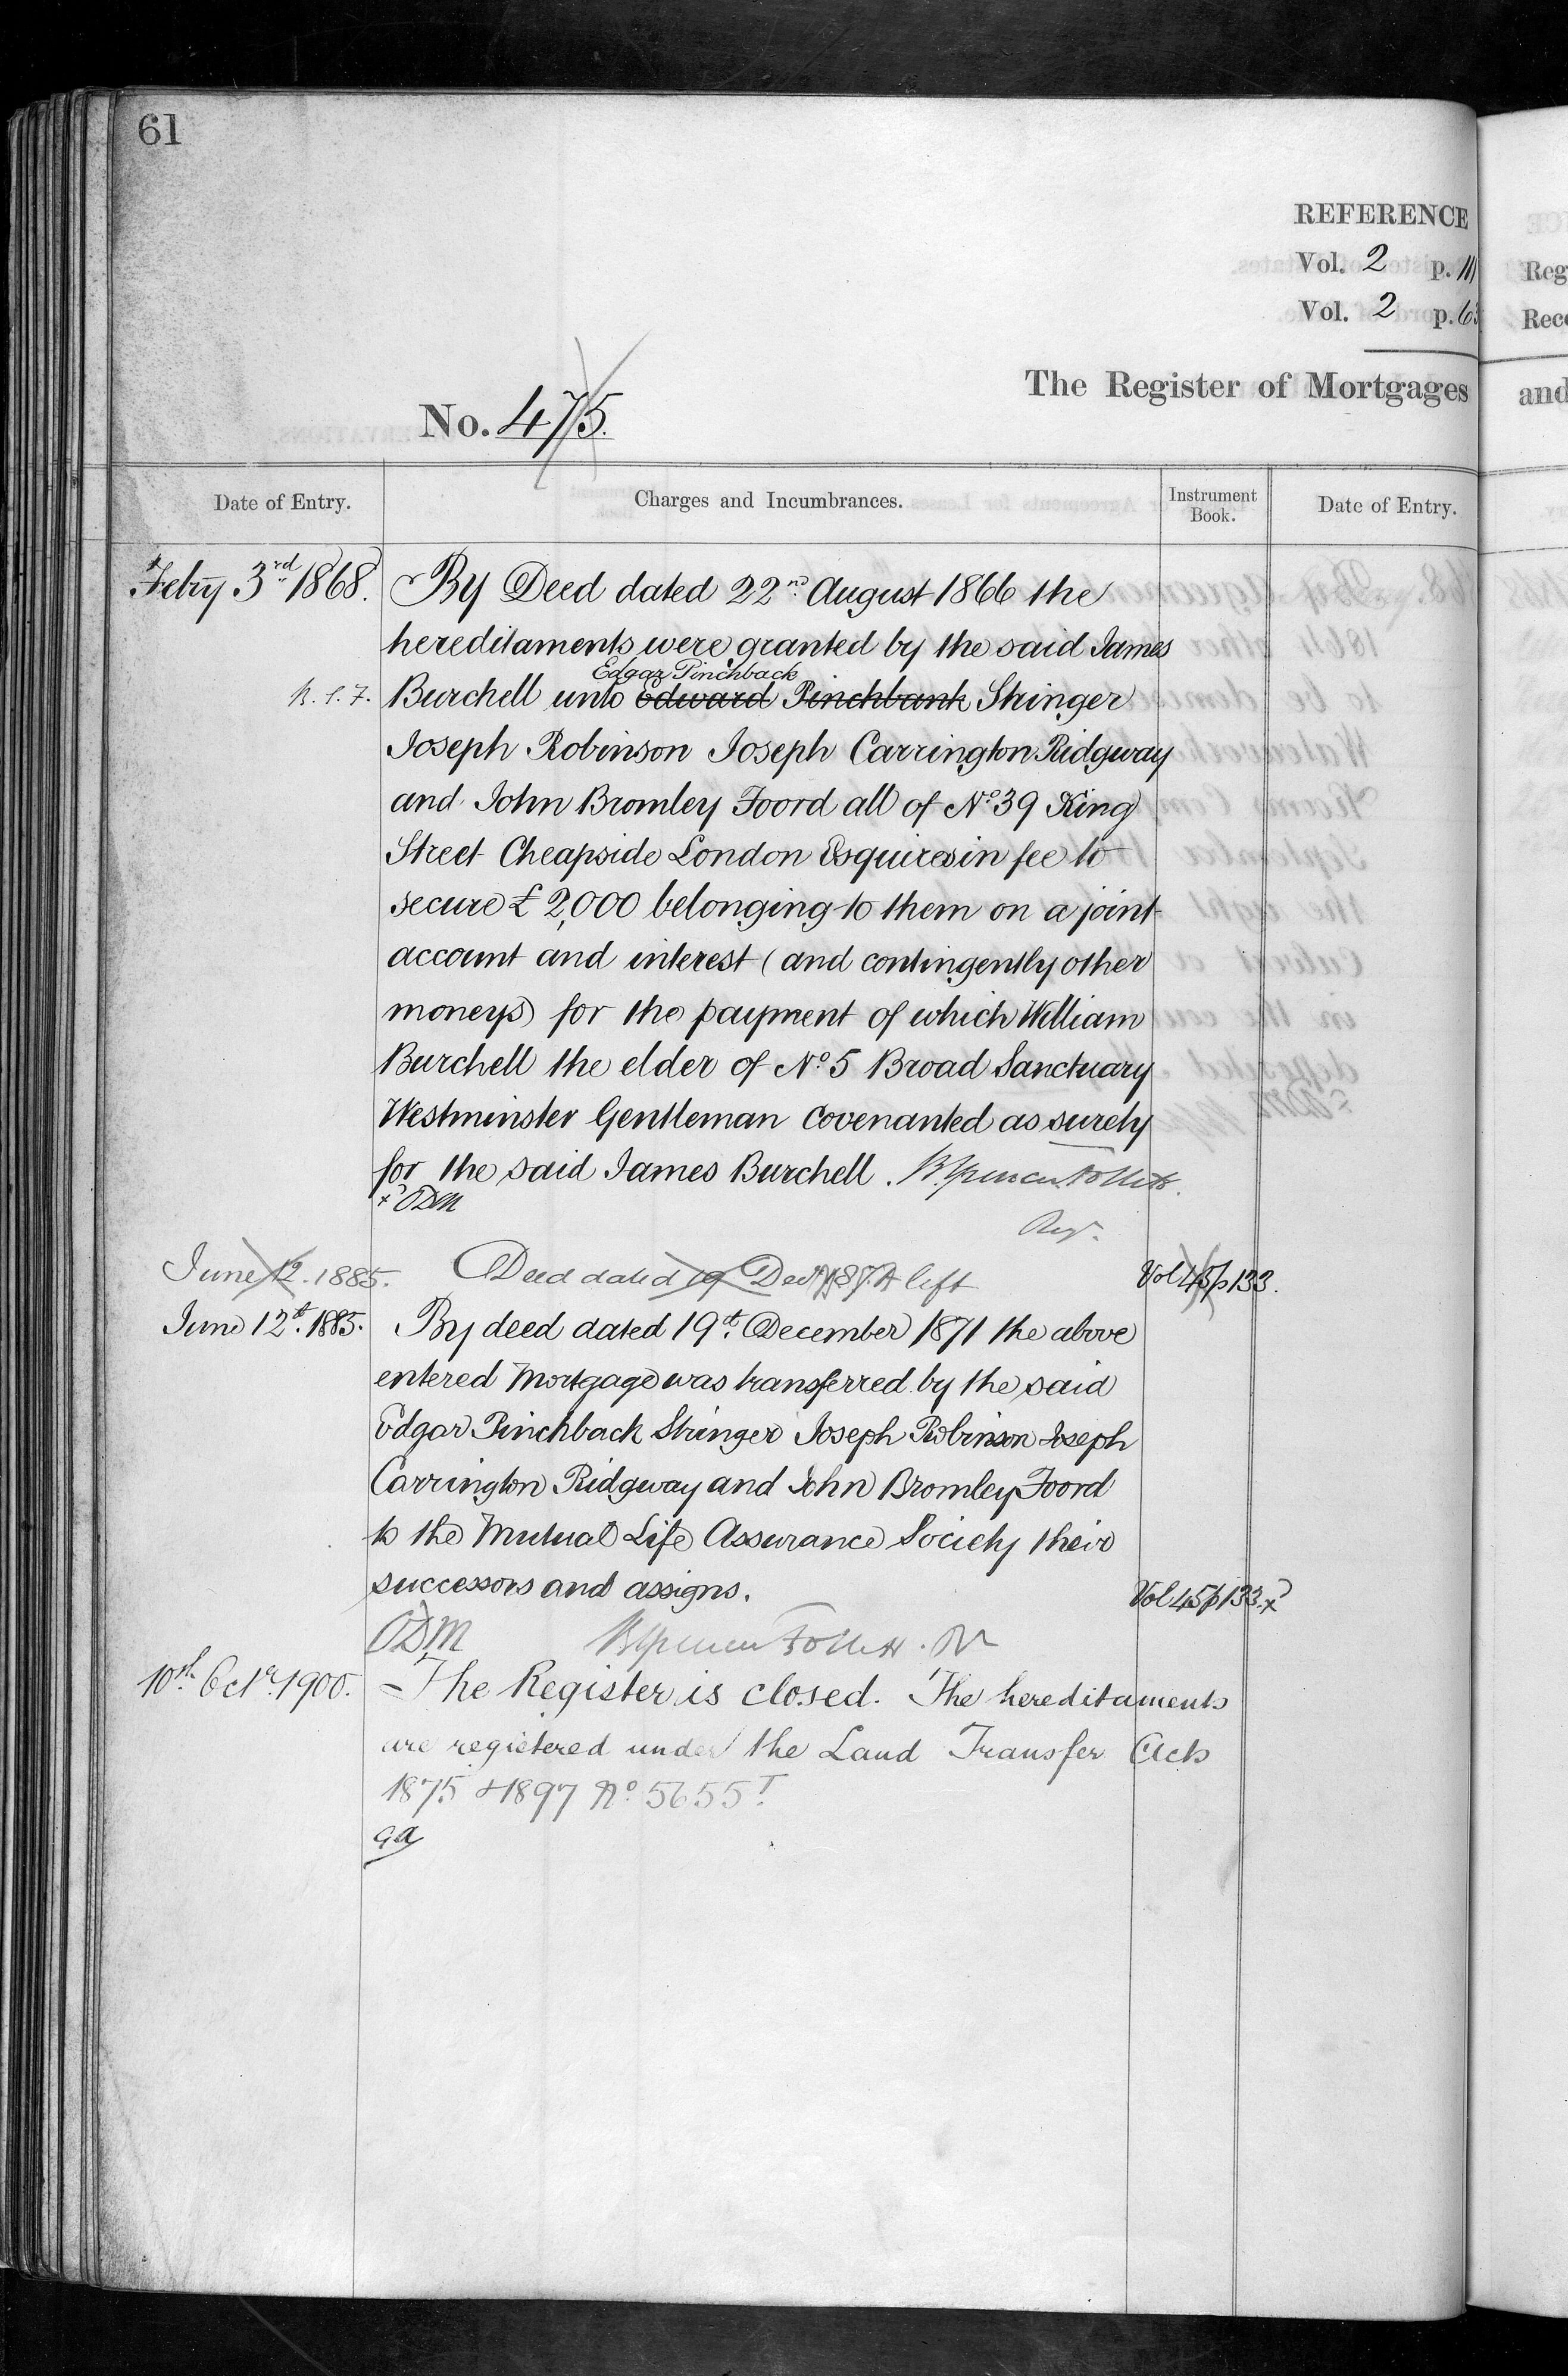 61
REFERENCE
Vol. 2 p. 111
Vol. 2 p. 63
Reg
Rec
The Register of Mortgages
and
No. 475.
Date of Entry.
Charges and Incumbrances.
Instrument Book.
Date of Entry.
Febry 3rd 1868.
By Deed dated 22nd August 1866 the
hereditaments were granted by the said James
Edgar Pinchback
Burchell unto Edward Pinchbank Stringer
Joseph Robinson Joseph Carrington Ridgway
and John Bromley Foord all of No 39 King
Street Cheapside London Esquires in fee to
secure £2,000 belonging to them on a joint
account and interest (and contingently other
moneys) for the payment of which William
Burchell the elder of No 5 Broad Sanctuary
Westminster Gentleman covenanted as surety
for the said James Burchell. B. Spencer Follett.
x ODM
Regr.
June 12. 1885. Deed dated 19 Decr 1871 left Vol 45 p 133.
June 12th. 1885. By deed dated 19th December 1871 the above
entered Mortgage was transferred by the said
Edgar Pinchback Stringer Joseph Robinson Joseph
Carrington Ridgway and John Bromley Foord
to the Mutual Life Assurance Society their
successors and assigns. Vol 45 p 133. x
ODM B Spencer Follett. R
10th Octr. 1900. The Register is closed. The hereditaments
are registered under the Land Transfer Acts
1875 & 1897 No 5655T.